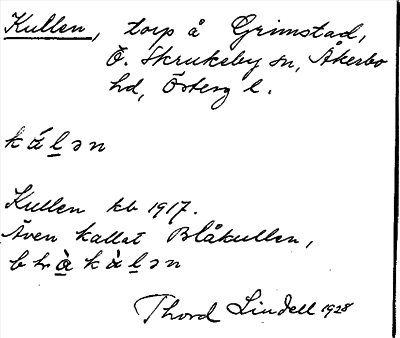 Kullen, torp å Grimstad,
Ö. Skrukeby sn, Åkerbo
hd, Österg l.
kálən
Kullen kb 1917.
Även kallat Blåkullen,
Thord Lindell 1928